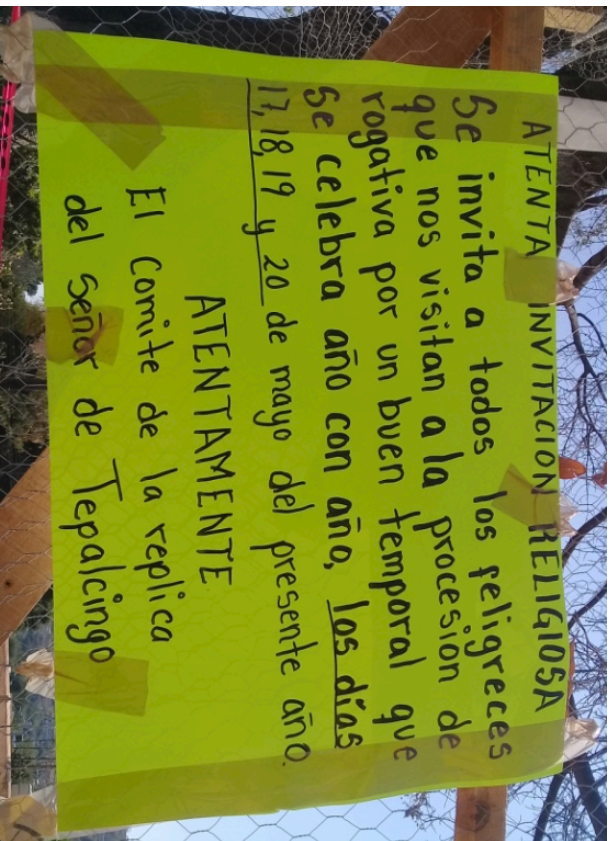 ATENTA INVITACION RELIGIOSA
Se invita a todos los feligreces
que nos visitan a la procesión de
rogativa por un buen temporal que
Se celebra año con año, los días
17, 18, 19 y 20 de mayo del presente año.
ATENTAMENTE
El Comite de la replica
del Señor de Tepalcingo